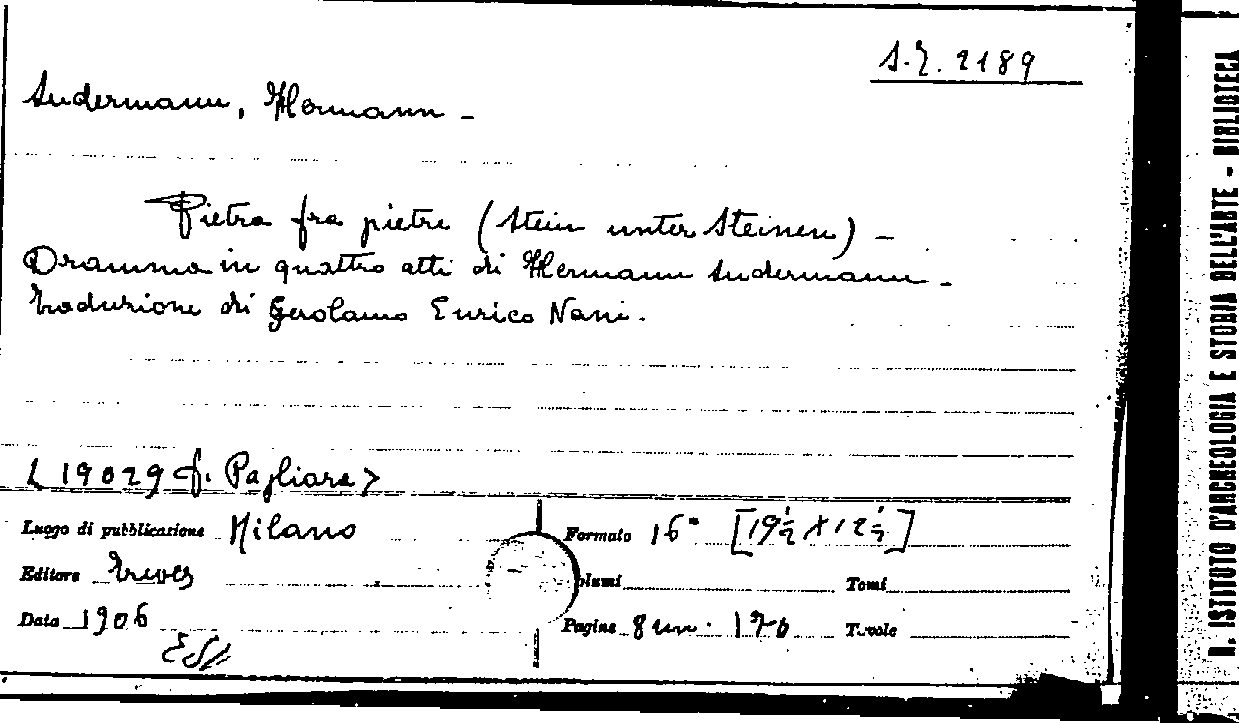 S.Z. 2189
Sudermann, Hermann -
Pietra fra pietre (Stein unter Steinen) -
Dramma in quattro atti di Hermann Sudermann -
Traduzione di Gerolamo Enrico Nani.
19029 f. Pagliara>
Luogo di pubblicazione Milano
Formato 16° [19½ X 12½]
Editore Treves
Volumi Tomi
Data 1906
Pagine 8 nn. 170 Tavole
R. ISTITUTO D'ARCHEOLOGIA E STORIA DELL'ARTE - BIBLIOTECA